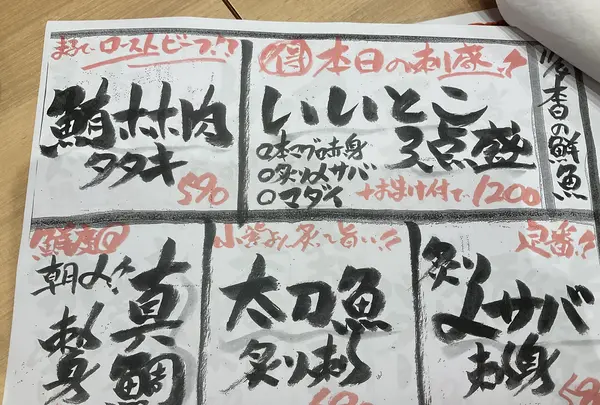 まるでローストビーフ!?
鮪ホホ肉
タタキ
590
得 本日の刺盛!!
いいとこ
3点盛
○本マグロ赤身
○炙り〆サバ
○マダイ
+おまけ付で、1200
の鮮魚
朝〆!!
真鯛
刺身
炙って旨い!!
太刀魚
炙り刺し
定番!!
炙り
〆サバ
刺身